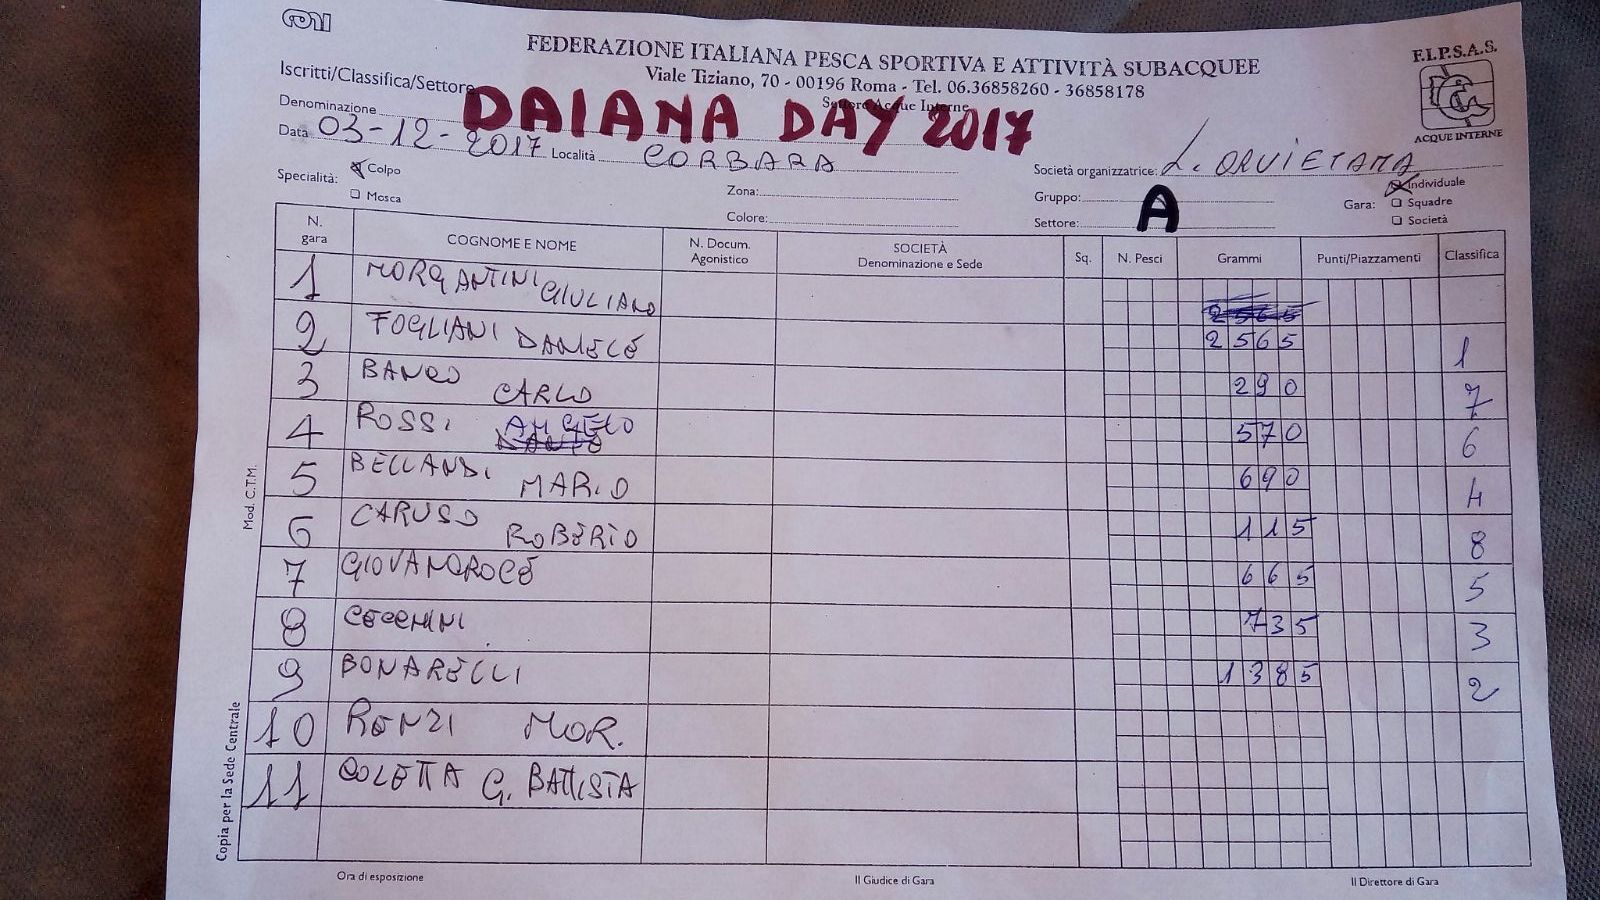 FEDERAZIONE ITALIANA PESCA SPORTIVA E ATTIVITÀ SUBACQUEE
Viale Tiziano, 70 - 00196 Roma - Tel. 06.36858260 - 36858178
Settore Acque Interne
F.I.P.S.A.S.
ACQUE INTERNE
Iscritti/Classifica/Settore
Denominazione DAIANA DAY 2017
Data 03-12-2017 Località CORBARA
Società organizzatrice: L. ORVIETANA
Specialità: Colpo
Mosca
Zona:
Colore:
Gruppo:
Settore: A
Gara: Individuale
Squadre
Società
N. gara COGNOME E NOME N. Docum. Agonistico SOCIETÀ Denominazione e Sede Sq. N. Pesci Grammi Punti/Piazzamenti Classifica
1 MORGANTINI GIULIANO 2565
2 FOGLIANI DANIELE 2565 1
3 BANCO CARLO 290 7
4 ROSSI ANGELO 570 6
5 BELLANDI MARIO 690 4
6 CARUSO ROBERTO 115 8
7 665 5
8 CECCHINI 735 3
9 BONARELLI 1385 2
10 RENZI MOR.
11 COLETTA G. BATTISTA
Mod. C.T.M.
Copia per la Sede Centrale
Ora di esposizione
Il Giudice di Gara
Il Direttore di Gara